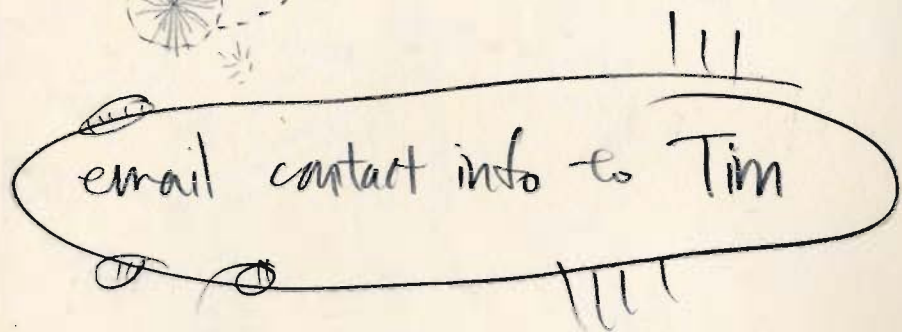 email contact info to Tim